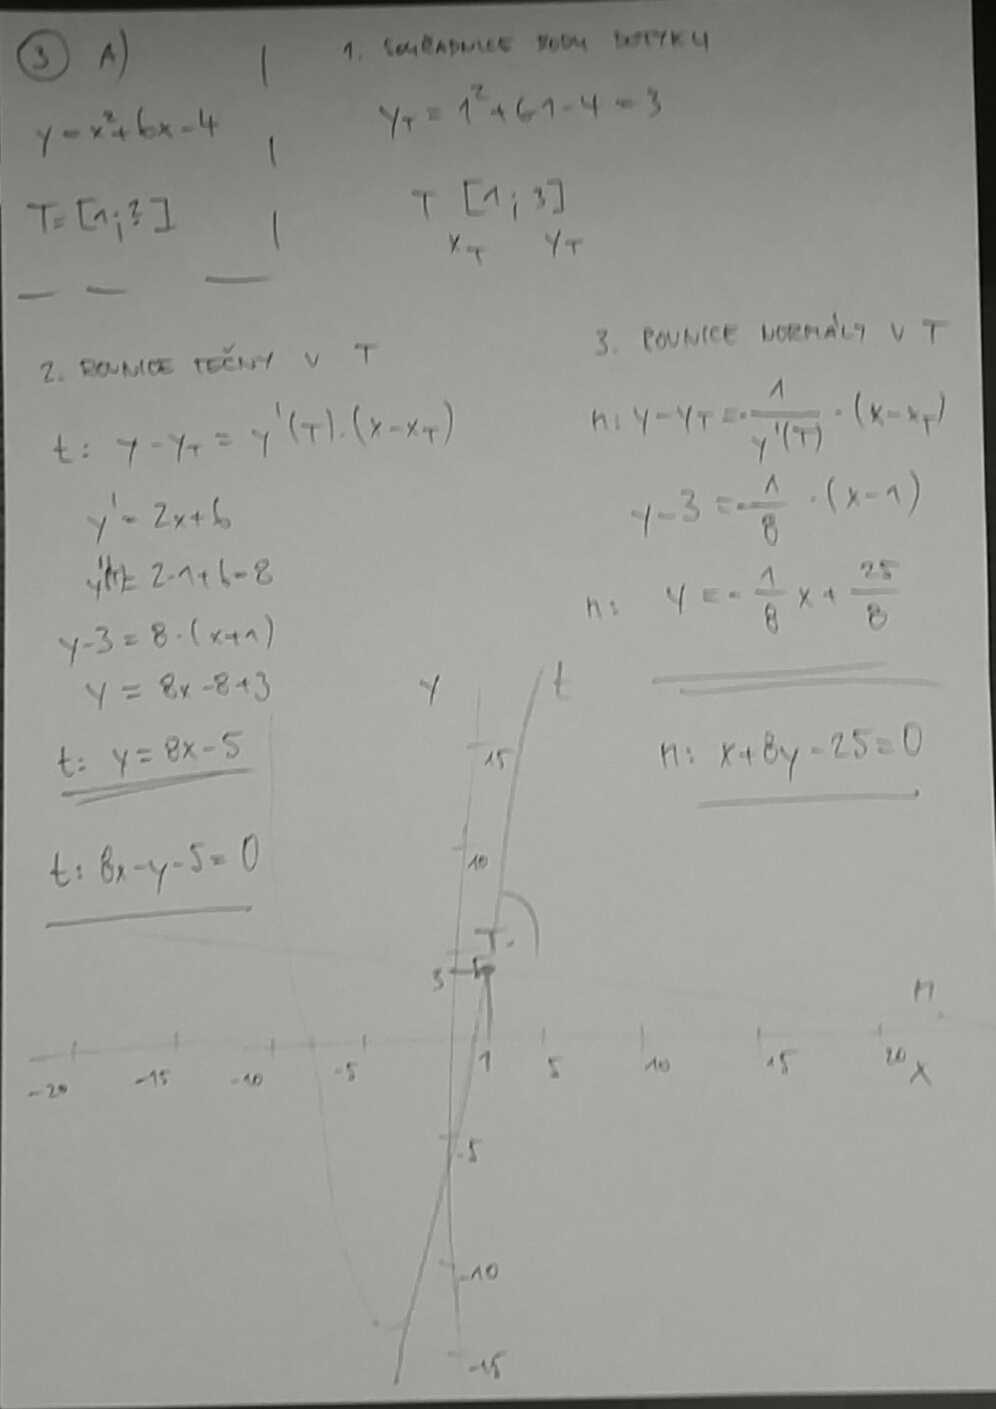 3 A)
y = x² + 6x - 4
T = [1; ?]
1. SOUŘADNICE BODU DOTYKU
y_T = 1² + 6·1 - 4 = 3
T [1; 3]
x_T y_T
2. ROVNICE TEČNY V T
t: y - y_T = y'(T)·(x - x_T)
y' = 2x + 6
y'(T) = 2·1 + 6 = 8
y - 3 = 8·(x + 1)
y = 8x - 8 + 3
t: y = 8x - 5
t: 8x - y - 5 = 0
3. ROVNICE NORMÁLY V T
n: y - y_T = -1/y'(T) · (x - x_T)
y - 3 = -1/8 · (x - 1)
n: y = -1/8 x + 25/8
n: x + 8y - 25 = 0
y t
15
10
T
3
n
-20 -15 -10 -5 1 5 10 15 20 x
-5
-10
-15